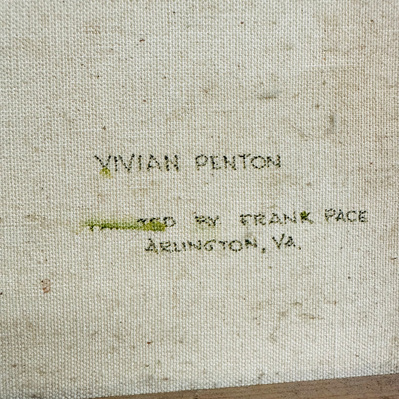 VIVIAN PENTON
BY FRANK PACE
ARLINGTON, VA.